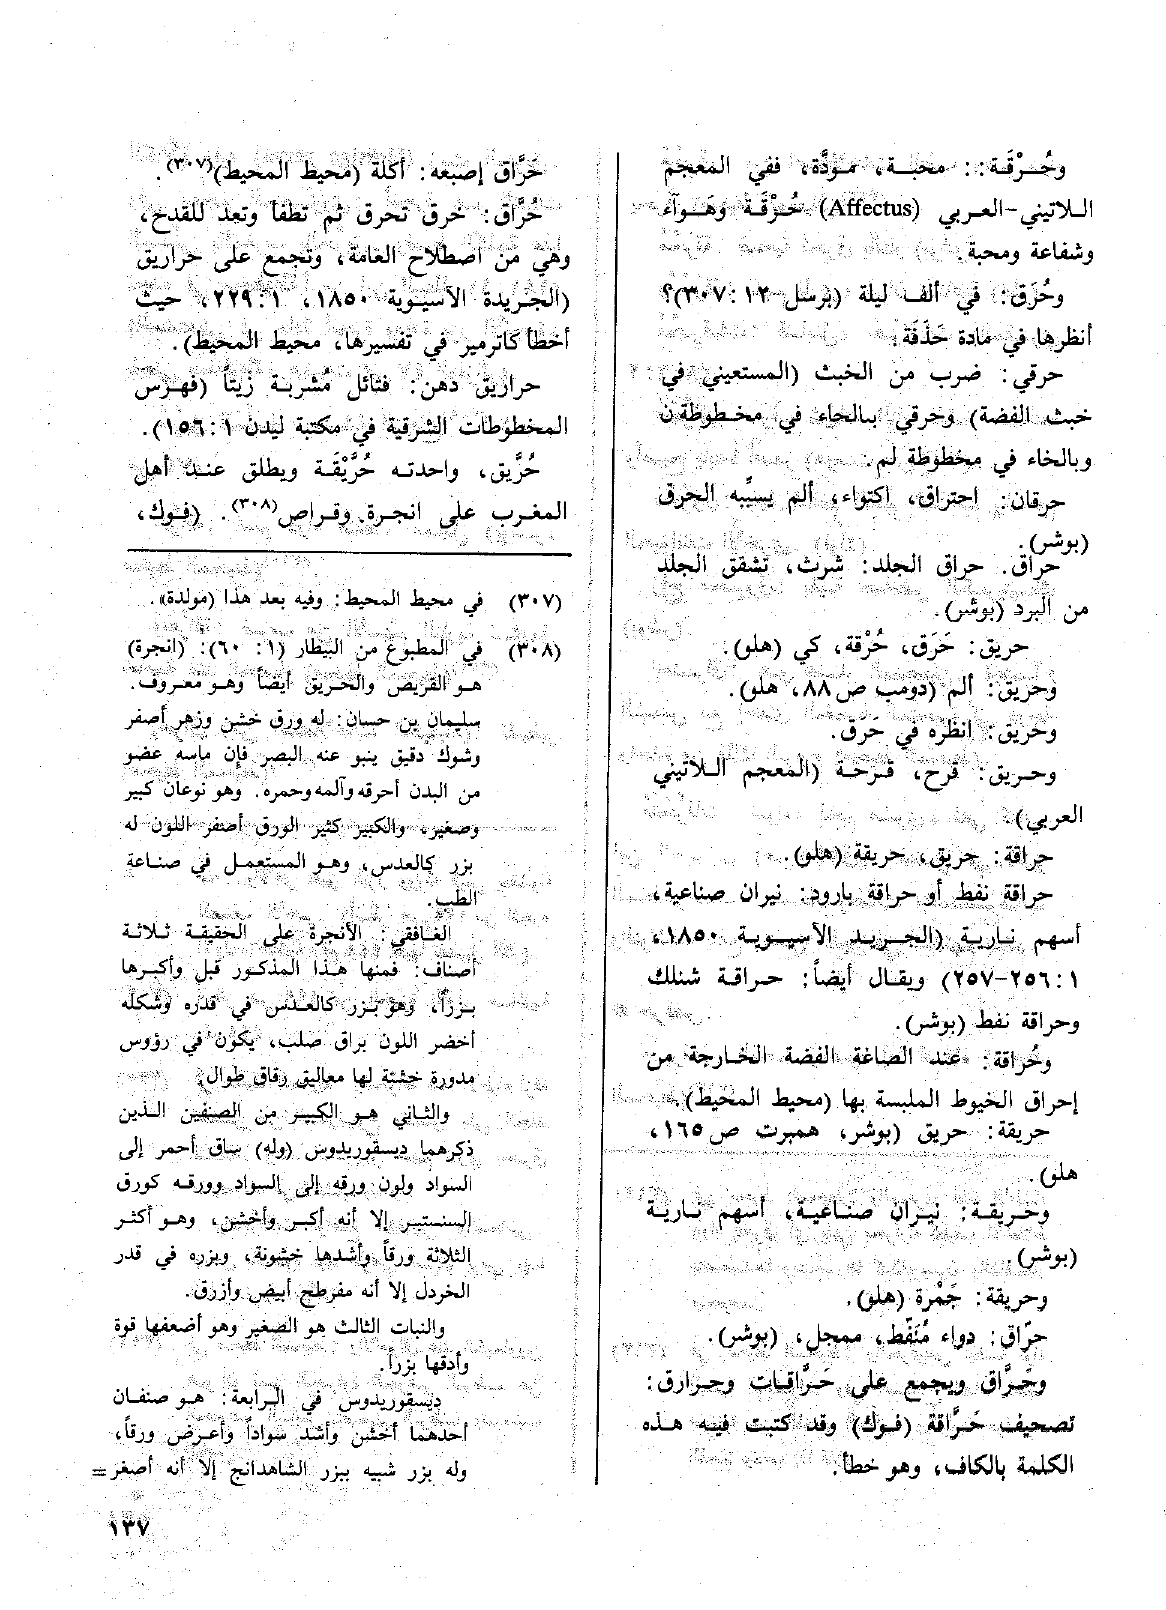 وحُـرْقَـة: محبـة، مـودَّة، ففي المعجم
اللاتيني-العربي (Affectus) حُـرْقَـة وهَـوآء
وشفاعة ومحبة.
وحُرَق: في ألف ليلة (برسل ١٢: ٣٠٧)؟
أنظرها في مادة حَذَفَة.
حرقي: ضرب من الخبث (المستعيني في
خبث الفضة) وحرقي بالحاء في مخطوطة ن
وبالخاء في مخطوطة لم.
حرقان: احتراق، اكتواء، ألم يسبِّبه الحرق
(بوشر).
حراق. حراق الجلد: شرث، تشقق الجلد
من البرد (بوشر).
حريق: حَرَق، حُرْقة، كي (هلو).
وحريق: ألم (دومب ص٨٨، هلو).
وحريق: انظره في حَرَق.
وحـريق: قرح، قـرحـة (المعجم اللاتيني
العربي).
حراقة: حريق، حريقة (هلو).
حراقة نفط أو حراقة بارود: نيران صناعية،
أسهم نـارية (الجـريد الآسيـوية ١٨٥٠،
١: ٢٥٦-٢٥٧) ويقـال أيضاً: حـراقـة شنلك
وحراقة نفط (بوشر).
وحُراقة: عند الصاغة الفضة الخارجة من
إحراق الخيوط الملبسة بها (محيط المحيط).
حريقة: حريق (بوشر، همبرت ص١٦٥،
هلو).
وحـريقـة: نيـران صنـاعيـة، أسهم نـاريـة
(بوشر).
وحريقة: جَمْرة (هلو).
حرّاق: دواء مُنَفّط، ممجل، (بوشر).
وحَـرَّاق ويجمع على حَـرَّاقـات وحـرارق:
تصحيف حَرَّاقة (فوك) وقد كتبت فيه هـذه
الكلمة بالكاف، وهو خطأ.
حَرَّاق إصبعه: أكلة (محيط المحيط)(٣٠٧).
حُرَّاق: خرق تحرق ثم تطفأ وتعد للقدح،
وهي من اصطلاح العامة، وتجمع على حراريق
(الجريدة الآسيوية ١٨٥٠، ١: ٢٢٩، حيث
أخطأ كاترمير في تفسيرها، محيط المحيط).
حراريق دهن: فتائل مُشربـة زيتاً (فهـرس
المخطوطات الشرقية في مكتبة ليدن ١: ١٥٦).
حُرَّيق، واحدتـه حُرَّيْقَـة ويطلق عنـد أهل
المغرب على انجرة وقـراص(٣٠٨). (فـوك،
(٣٠٧) في محيط المحيط: وفيه بعد هذا (مولدة).
(٣٠٨) في المطبوع من البيطار (١: ٦٠): (انجرة)
هـو القريص والحريق أيضاً وهـو معروف.
سليمان بن حسان: له ورق خشن وزهر أصفر
وشوك دقيق ينبو عنه البصر فإن ماسه عضو
من البدن أحرقه وآلمه وحمره. وهو نوعان كبير
وصغير، والكبير كثير الورق أصفر اللون له
بزر كالعدس، وهـو المستعمـل في صنـاعة
الطب.
الغـافقي: الأنجرة على الحقيقة ثـلاثـة
أصناف: فمنها هـذا المذكـور قبل وأكبـرها
بـزراً، وهو بـزر كالعـدس في قدره وشكله
أخضر اللون براق صلب، يكون في رؤوس
مدورة خشنة لها معاليق رقاق طوال.
والثـاني هـو الكبيـر من الصنفين الـذين
ذكرهما ديسقوريدوس (وله) ساق أحمر إلى
السواد ولون ورقه إلى السواد وورقـه كورق
السنستبـر إلا أنه أكبـر وأخشن، وهـو أكثـر
الثلاثة ورقاً وأشدها خشونة، وبزره في قدر
الخردل إلا أنه مفرطح أبيض وأزرق.
والنبات الثالث هو الصغير وهو أضعفها قوة
وأدقها بزراً.
ديسقوريدوس في الرابعة: هـو صنفـان
أحدهما أخشن وأشد سواداً وأعـرض ورقـاً،
وله بزر شبيه ببزر الشاهدانج إلا أنه أصغر=
١٣٧